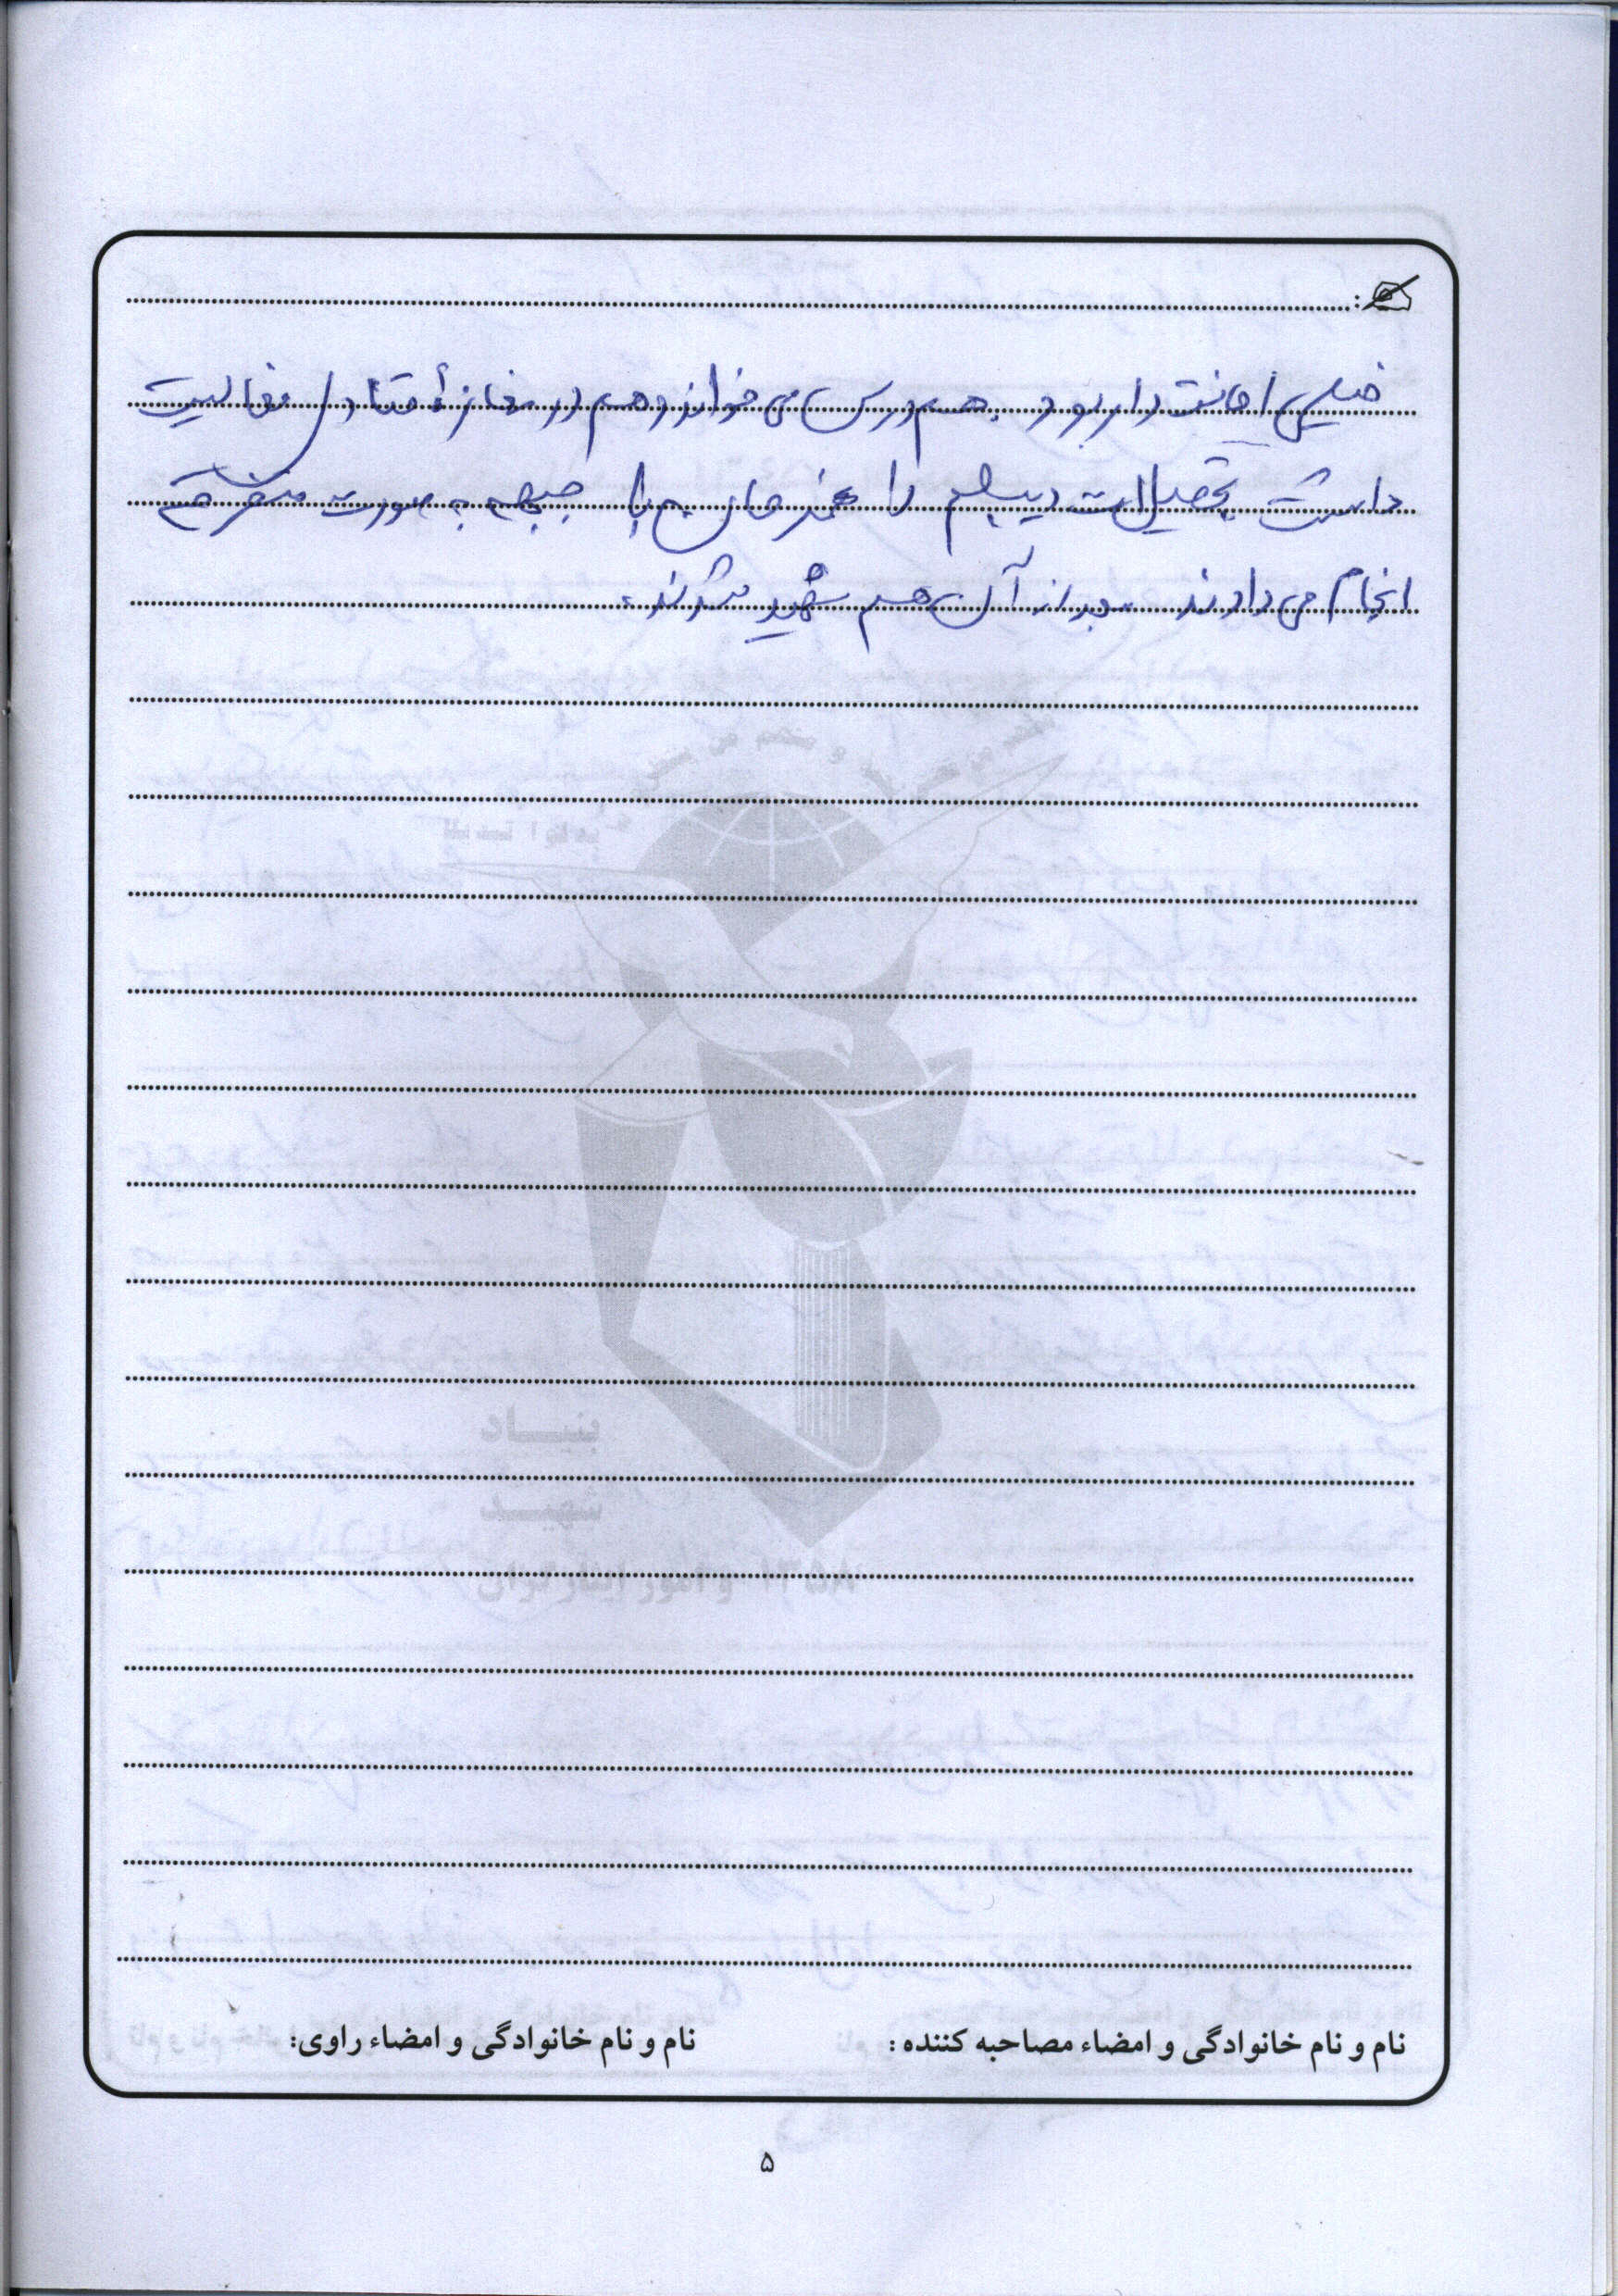 خیلی امانت دار بود و هم درس می خواند و هم در مغازه قنادی فعالیت
داشت تحصیلات دیپلم را همزمان با جبهه به صورت متفرقه
انجام می دادند بعد از آن هم شهید شدند.
بنیاد
شهید
و امور ایثارگران ۱۳۵۸
نام و نام خانوادگی و امضاء مصاحبه کننده : نام و نام خانوادگی و امضاء راوی:
۵